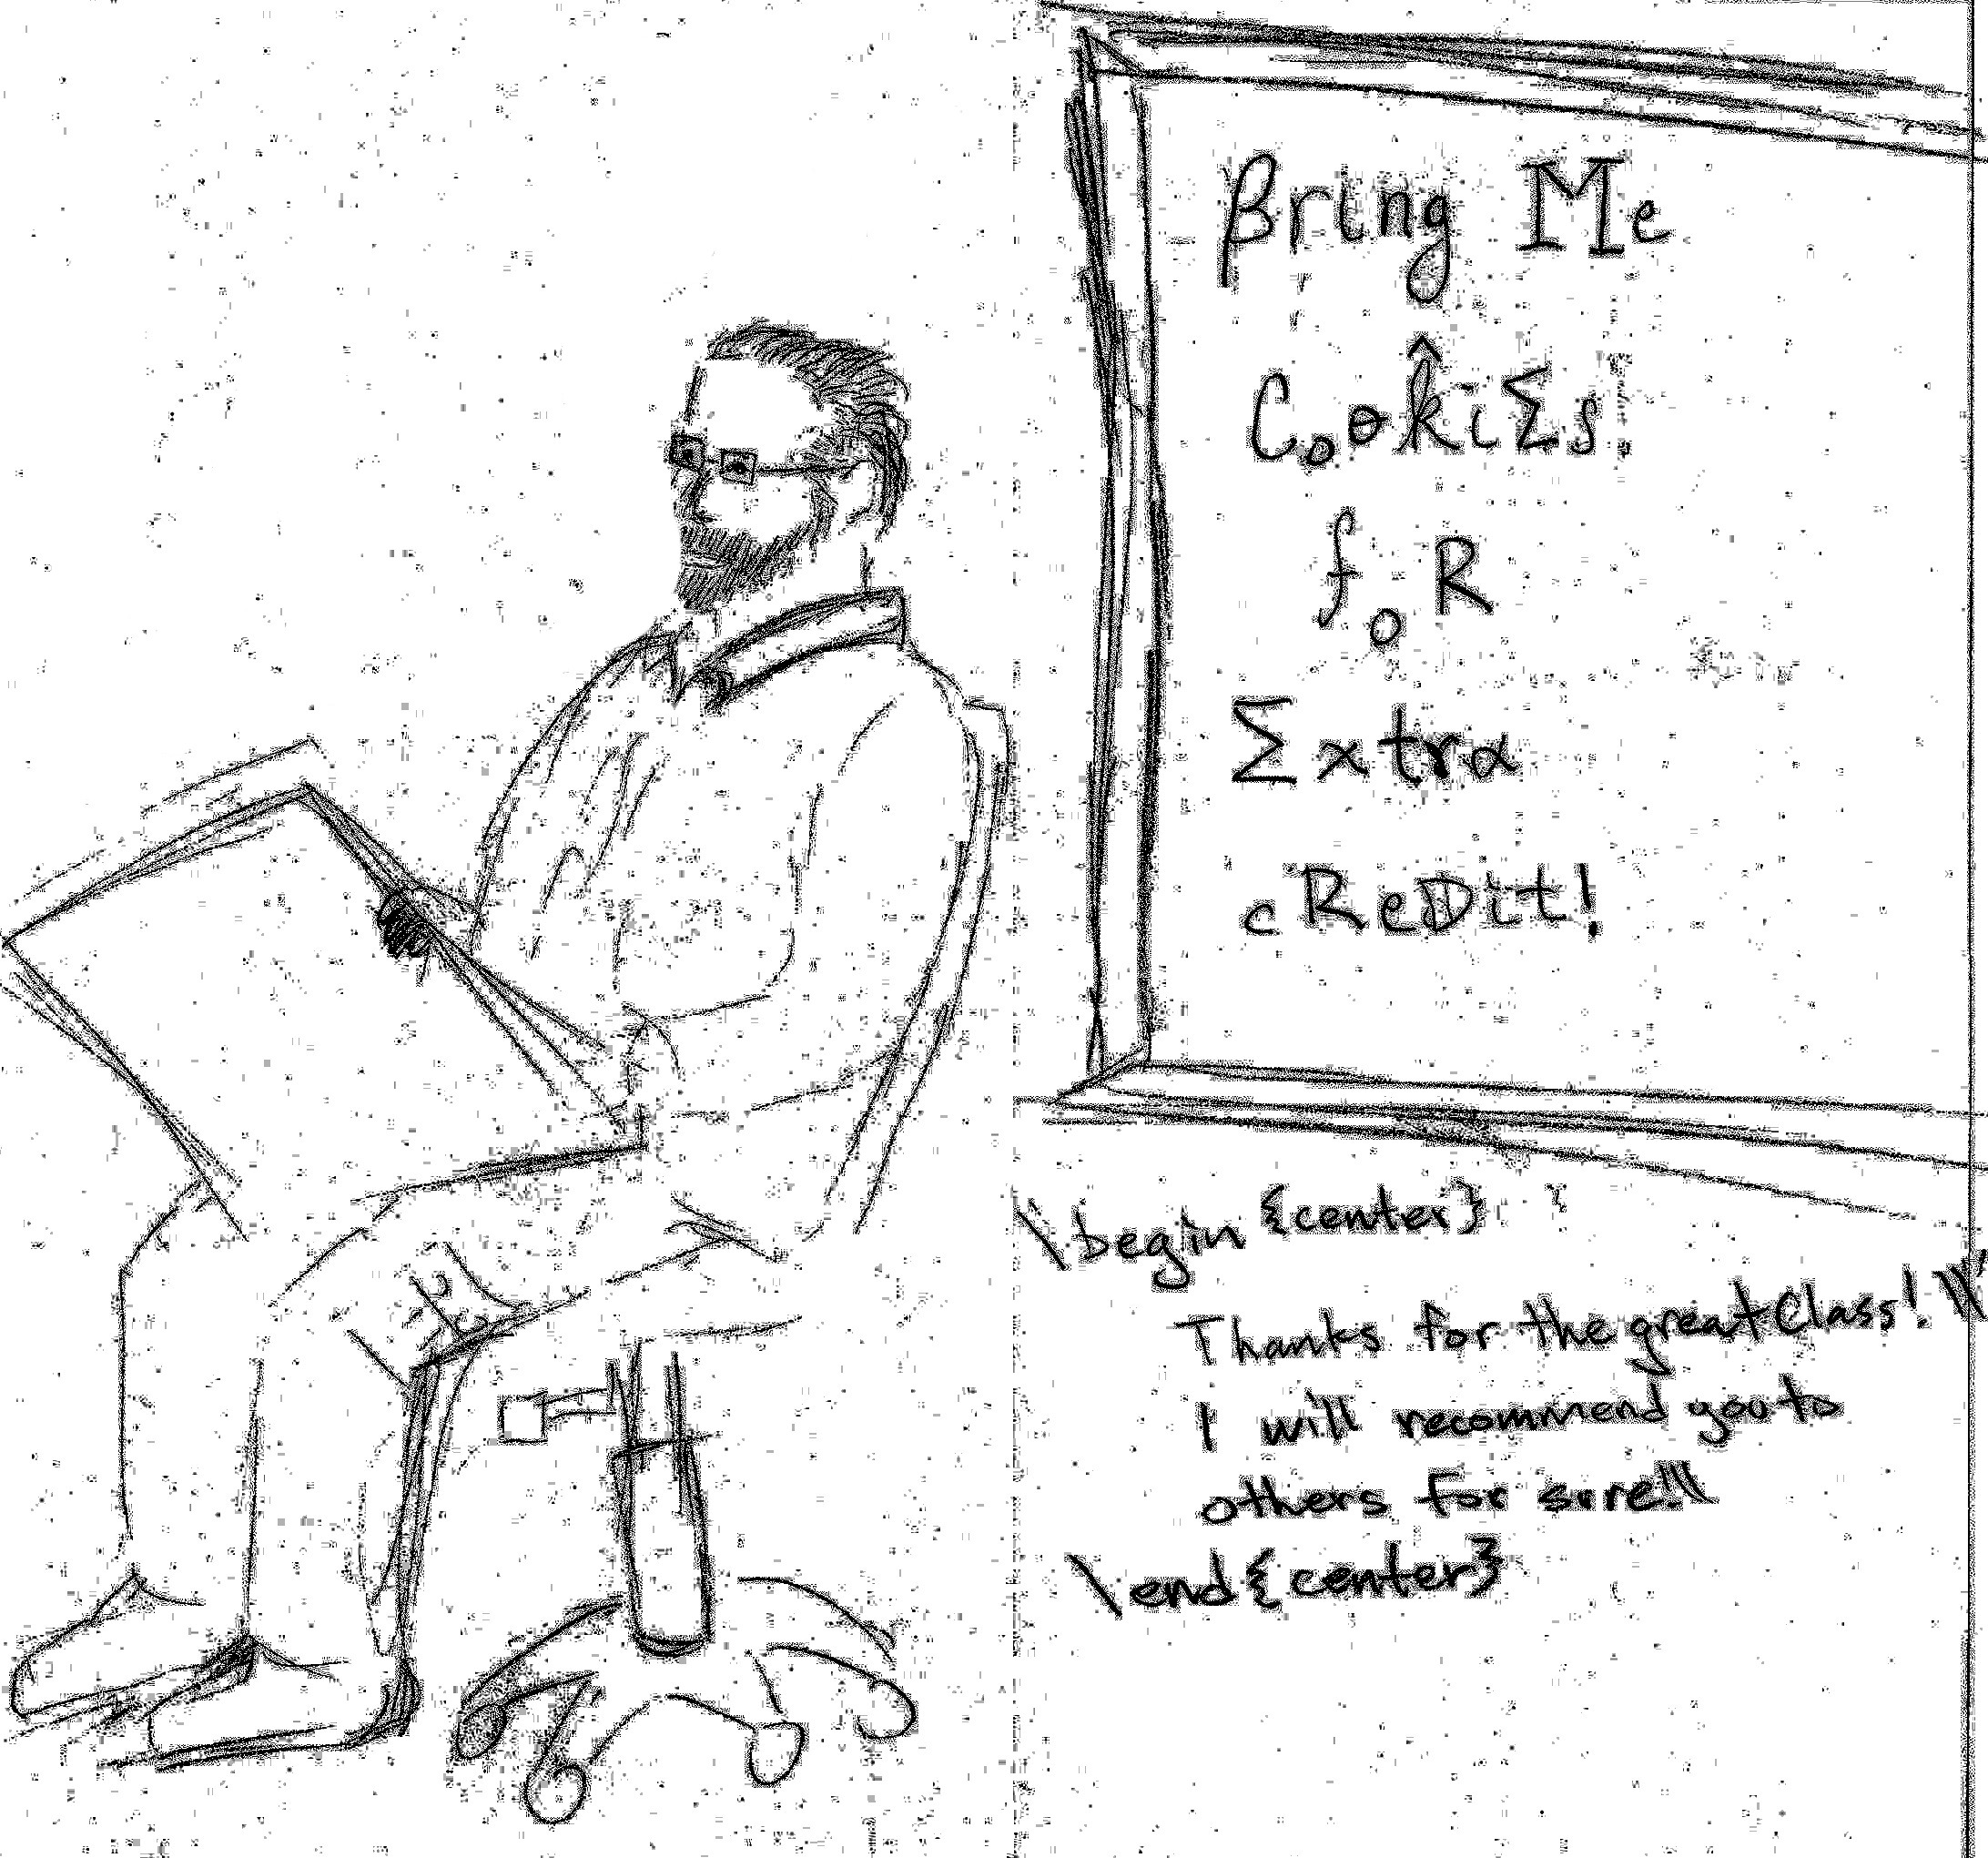 βring Me
Cₒθk̂iΣs!
fₒR
Σxtrα
cReDit!
\begin{center}
Thanks for the great Class! \\
I will recommend you to
others for sure!\\
\end{center}